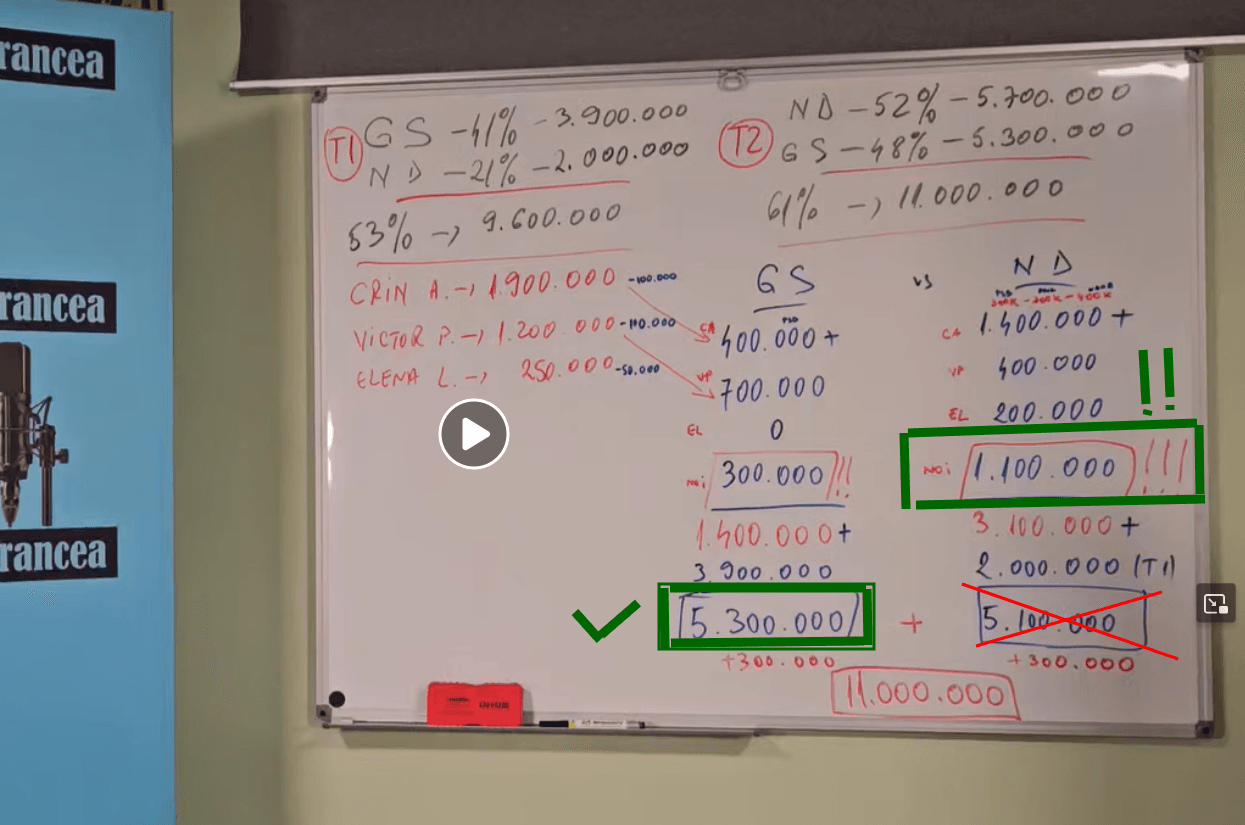 rancea
rancea
rancea
T1
GS - 41% - 3.900.000
ND - 21% - 2.000.000
53% -> 9.600.000
CRIN A. -> 1.900.000 -100.000
VICTOR P. -> 1.200.000 -100.000
ELENA L. -> 250.000 -50.000
T2
ND - 52% - 5.700.000
GS - 48% - 5.300.000
61% -> 11.000.000
GS
PSD
CA 400.000 +
VP 700.000
EL 0
NOi 300.000 !!
1.400.000 +
3.900.000
5.300.000
+300.000
vs
ND
PSD
200K - 200K - 400K
CA 1.400.000 +
VP 400.000
EL 200.000
!!
NOi 1.100.000 !!!
3.100.000 +
2.000.000 (T1)
5.100.000
+300.000
+
11.000.000